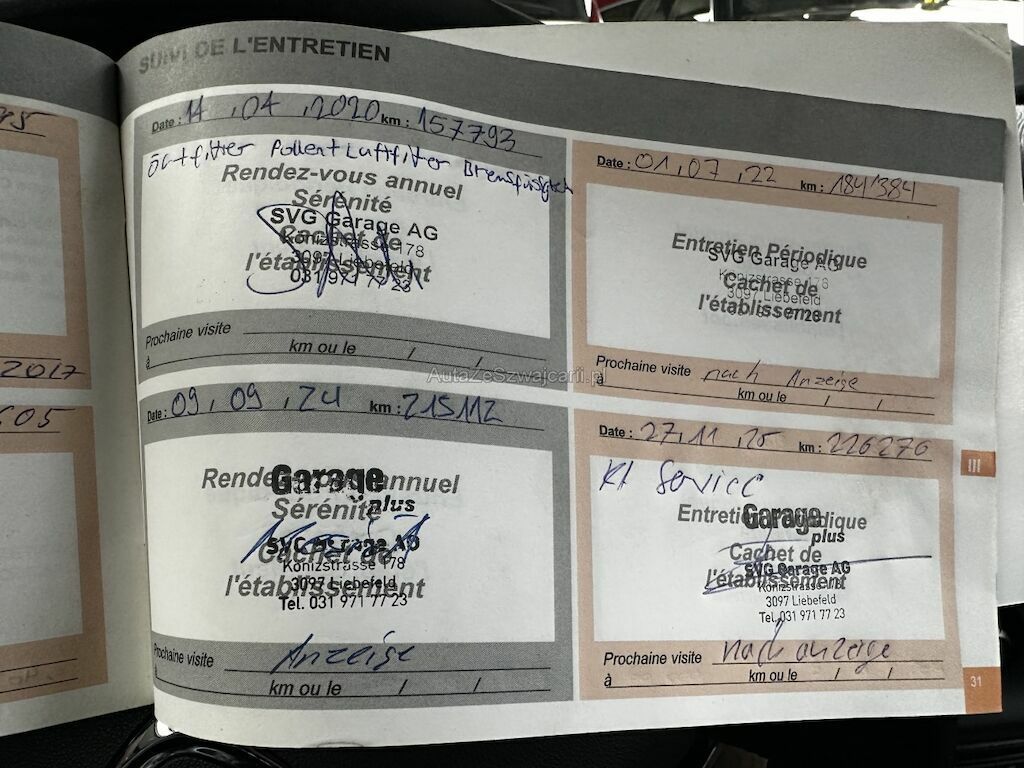 SUIVI DE L'ENTRETIEN
Date : 14 , 04 , 2020 km : 157793
Ölfilter Pollen Luftfilter
Rendez-vous annuel
Sérénité
SVG Garage AG
Cachet de
Könizstrasse 178
3097 Liebefeld
l'établissement
031 971 77 23
Prochaine visite
à km ou le / /
Date : 01 , 07 , 22 km : 184'384
Entretien Périodique
SVG Garage AG
Könizstrasse 178
Cachet de
3097 Liebefeld
l'établissement
Prochaine visite nach Anzeige
à km ou le / /
Date : 09 , 09 , 24 km : 215112
Rendez-vous annuel
Garage
plus
Sérénité
SVG Garage AG
Cachet de
Könizstrasse 178
3097 Liebefeld
l'établissement
Tel. 031 971 77 23
Prochaine visite Anzeige
à km ou le / /
Date : 27 , 11 , 25 km : 226276
Kl Service
Entretien Périodique
Garage
plus
Cachet de
SVG Garage AG
l'établissement
Könizstrasse 178
3097 Liebefeld
Tel. 031 971 77 23
Prochaine visite nach anzeige
à km ou le / /
III
31
2017
605
AutaZeSzwajcarii.pl